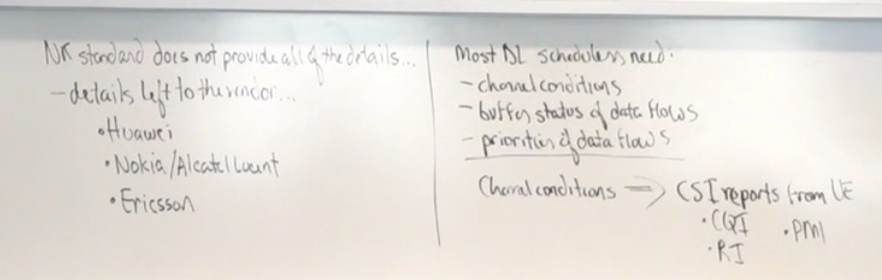 NR standard does not provide all of the details...
- details left to the vendor...
• Huawei
• Nokia/Alcatel Lucent
• Ericsson
Most DL schedulers need:
- channel conditions
- buffer status of data flows
- priorities of data flows
Channel conditions => CSI reports from UE
• CQI • PMI
• RI